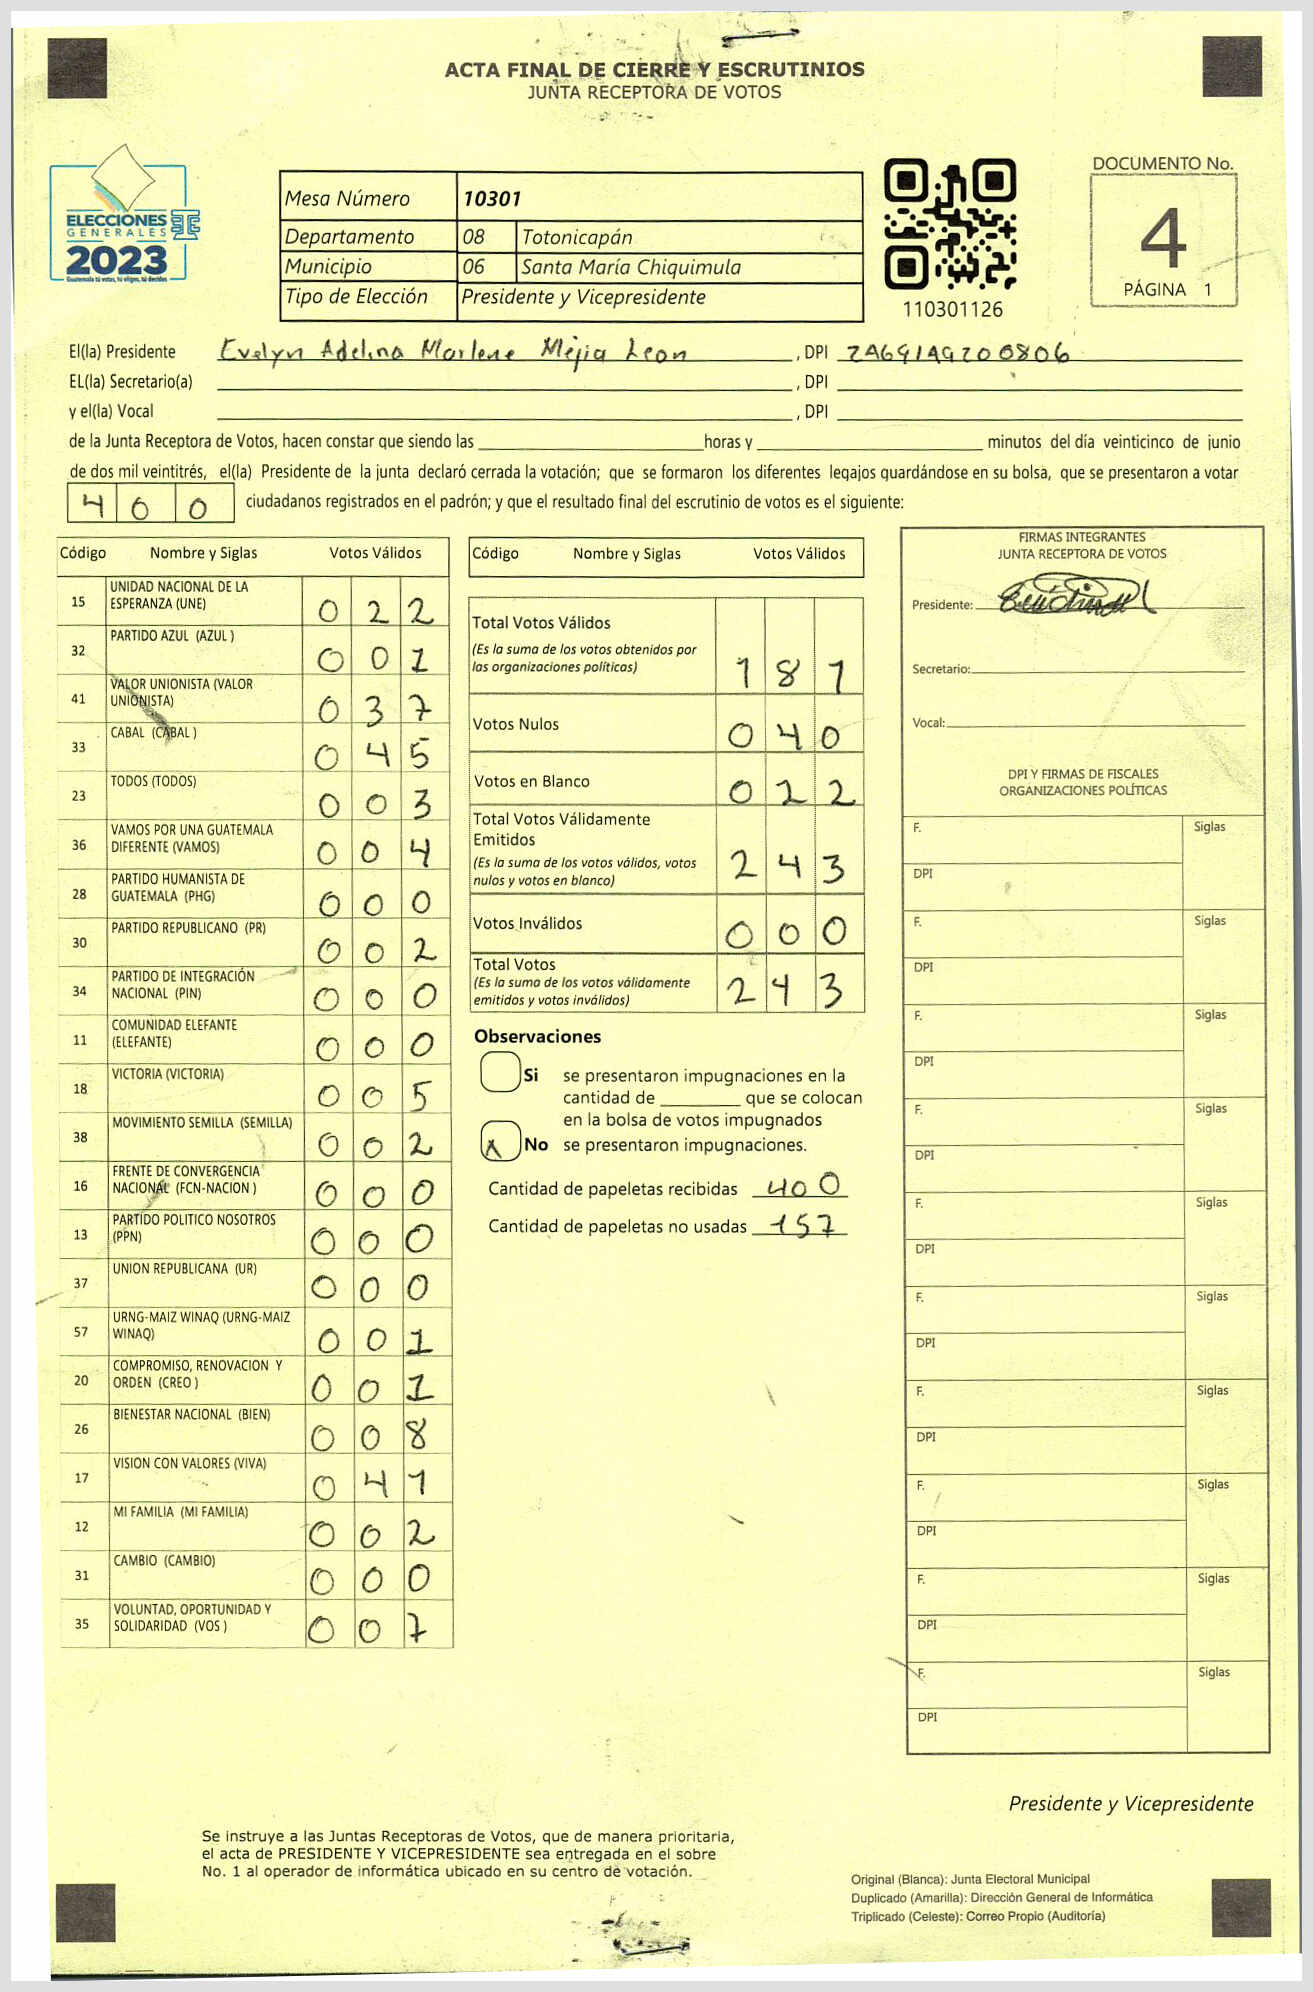 ACTA FINAL DE CIERRE Y ESCRUTINIOS
JUNTA RECEPTORA DE VOTOS
ELECCIONES
GENERALES
2023
Guatemala tú votas, tú eliges, tú decides
Mesa Número 10301
Departamento 08 Totonicapán
Municipio 06 Santa María Chiquimula
Tipo de Elección Presidente y Vicepresidente
110301126
DOCUMENTO No.
4
PÁGINA 1
El(la) Presidente Evelyn Adelina Marlene Mejia Leon , DPI
EL(la) Secretario(a) , DPI
y el(la) Vocal , DPI
de la Junta Receptora de Votos, hacen constar que siendo las horas y minutos del día veinticinco de junio
de dos mil veintitrés, el(la) Presidente de la junta declaró cerrada la votación; que se formaron los diferentes legajos guardándose en su bolsa, que se presentaron a votar
400 ciudadanos registrados en el padrón; y que el resultado final del escrutinio de votos es el siguiente:
Código Nombre y Siglas Votos Válidos
15 UNIDAD NACIONAL DE LA ESPERANZA (UNE) 022
32 PARTIDO AZUL (AZUL ) 001
41 VALOR UNIONISTA (VALOR UNIONISTA) 037
33 CABAL (CABAL ) 045
23 TODOS (TODOS) 003
36 VAMOS POR UNA GUATEMALA DIFERENTE (VAMOS) 004
28 PARTIDO HUMANISTA DE GUATEMALA (PHG) 000
30 PARTIDO REPUBLICANO (PR) 002
34 PARTIDO DE INTEGRACIÓN NACIONAL (PIN) 000
11 COMUNIDAD ELEFANTE (ELEFANTE) 000
18 VICTORIA (VICTORIA) 005
38 MOVIMIENTO SEMILLA (SEMILLA) 002
16 FRENTE DE CONVERGENCIA NACIONAL (FCN-NACION ) 000
13 PARTIDO POLITICO NOSOTROS (PPN) 000
37 UNION REPUBLICANA (UR) 000
57 URNG-MAIZ WINAQ (URNG-MAIZ WINAQ) 001
20 COMPROMISO, RENOVACION Y ORDEN (CREO ) 001
26 BIENESTAR NACIONAL (BIEN) 008
17 VISION CON VALORES (VIVA) 041
12 MI FAMILIA (MI FAMILIA) 002
31 CAMBIO (CAMBIO) 000
35 VOLUNTAD, OPORTUNIDAD Y SOLIDARIDAD (VOS ) 007
Código Nombre y Siglas Votos Válidos
Total Votos Válidos 181
(Es la suma de los votos obtenidos por
las organizaciones políticas)
Votos Nulos 040
Votos en Blanco 022
Total Votos Válidamente
Emitidos 243
(Es la suma de los votos válidos, votos
nulos y votos en blanco)
Votos Inválidos 000
Total Votos 243
(Es la suma de los votos válidamente
emitidos y votos inválidos)
Observaciones
Si se presentaron impugnaciones en la
cantidad de que se colocan
en la bolsa de votos impugnados
X No se presentaron impugnaciones.
Cantidad de papeletas recibidas 400
Cantidad de papeletas no usadas 157
FIRMAS INTEGRANTES
JUNTA RECEPTORA DE VOTOS
Presidente:
Secretario:
Vocal:
DPI Y FIRMAS DE FISCALES
ORGANIZACIONES POLÍTICAS
F. Siglas
DPI
F. Siglas
DPI
F. Siglas
DPI
F. Siglas
DPI
F. Siglas
DPI
F. Siglas
DPI
F. Siglas
DPI
F. Siglas
DPI
F. Siglas
DPI
F. Siglas
DPI
Presidente y Vicepresidente
Se instruye a las Juntas Receptoras de Votos, que de manera prioritaria,
el acta de PRESIDENTE Y VICEPRESIDENTE sea entregada en el sobre
No. 1 al operador de informática ubicado en su centro de votación.
Original (Blanca): Junta Electoral Municipal
Duplicado (Amarilla): Dirección General de Informática
Triplicado (Celeste): Correo Propio (Auditoría)